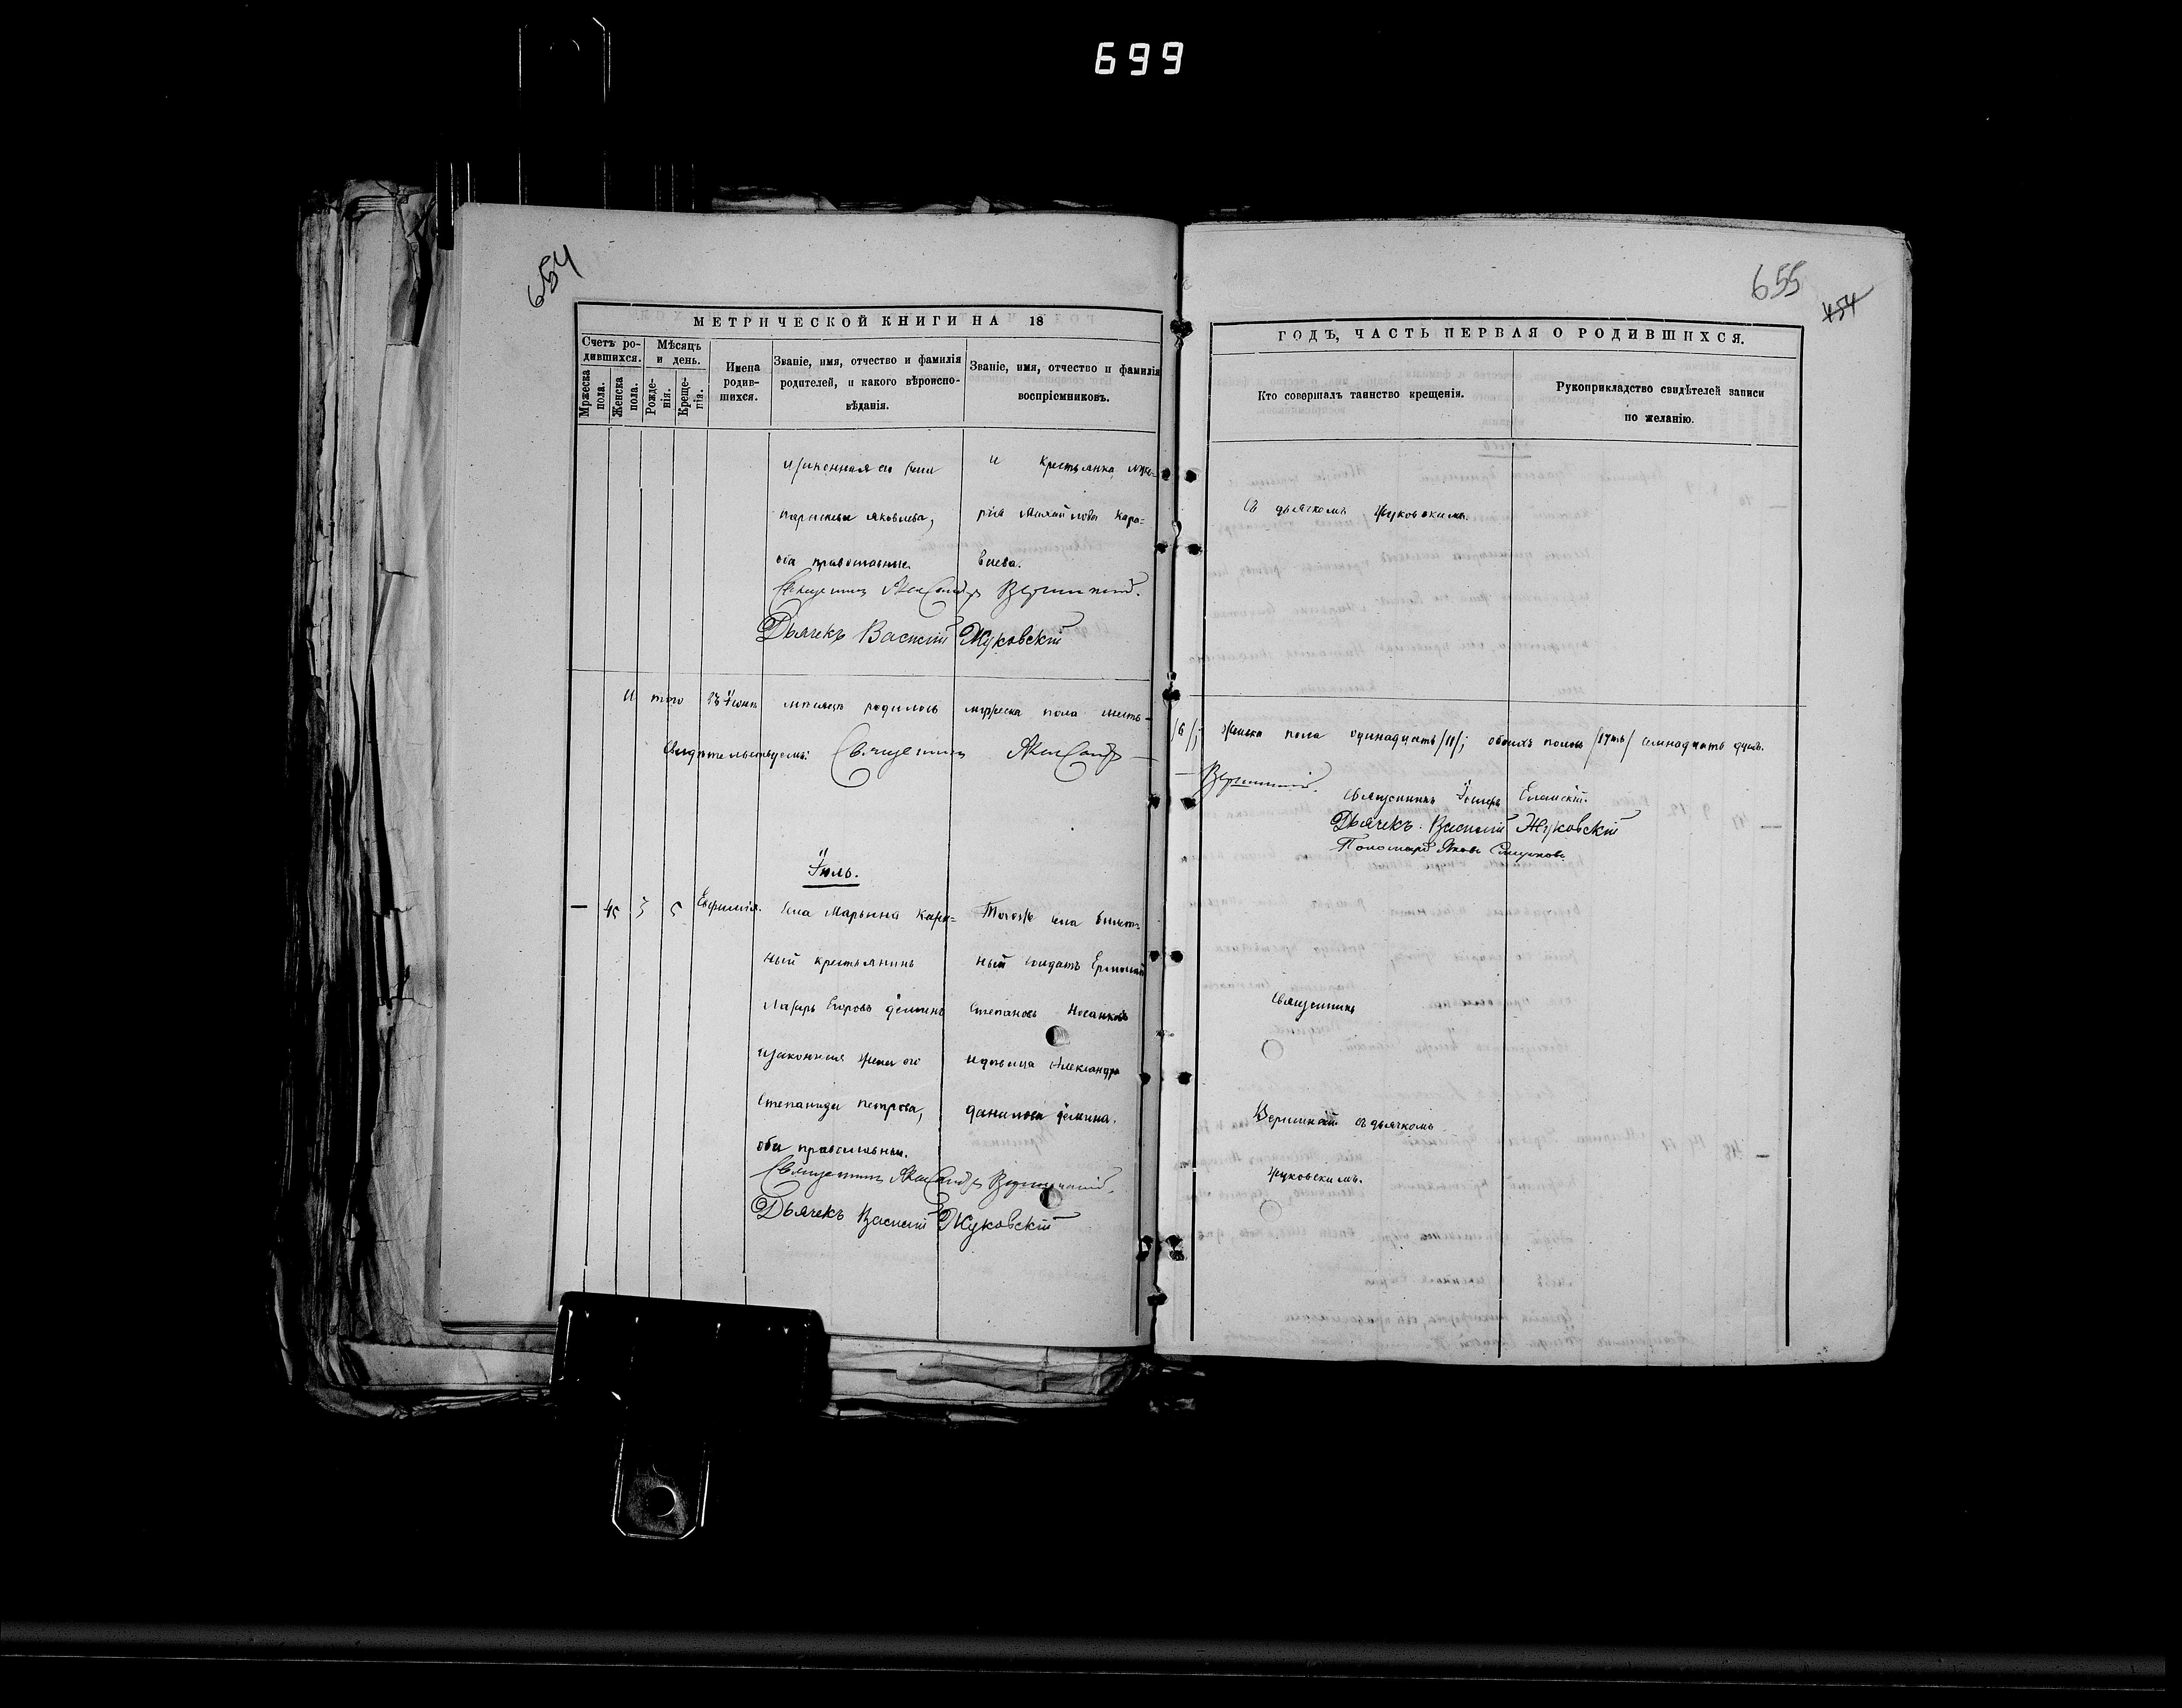 699
654
МЕТРИЧЕСКОЙ КНИГИ НА 18
Счетъ ро-
дившихся.
Мѣсяцъ
и день.
Мржеска
пола.
Женска
пола.
Рожде-
нія.
Креще-
нія.
Имена
родив-
шихся.
Званіе, имя, отчество и фамилія
родителей, и какого вѣроиспо-
вѣданія.
Званіе, имя, отчество и фамилія
воспріемниковъ.
и законная его
Яковлева,
оба православные.
и крестьянка
рія Михайлова Кара-
ваева.
Священникъ Александръ Вершинскій.
Дьячекъ Василій Жуковскій
И того въ Іюнѣ мѣсяцѣ родилось мужеска пола шесть
Свидѣтельствуемъ: Священникъ Александръ
Іюль.
— 45 3 5 Евфимія.
Села Марьина
ный крестьянинъ
Лазарь Егоровъ Дёминъ
и законная жена его
Степанида Петрова,
оба православные.
Тогожъ села
ный солдатъ Ермолай
Степановъ
и дѣвица Александра
Данилова Дёмина.
Священникъ Александръ Вершинскій.
Дьячекъ Василій Жуковскій
655
454
ГОДЪ, ЧАСТЬ ПЕРВАЯ О РОДИВШИХСЯ.
Кто совершалъ таинство крещенія.
Рукоприкладство свидѣтелей записи
по желанію.
Съ дьячкомъ Жуковскимъ.
/6/; женска пола одинадцать /11/; обоихъ половъ /17ть/ семнадцать душъ.
Вершинскій.
Священникъ
Дьячекъ Василій Жуковскій
Пономарь Яковъ
Священникъ
Вершинскій съ дьячкомъ
Жуковскимъ.